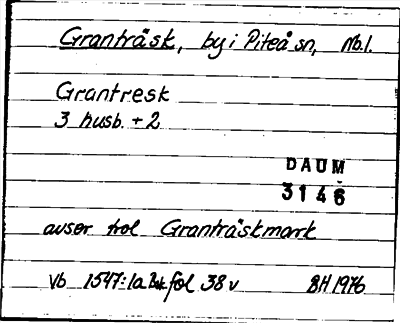 Granträsk, by i Piteå sn, Nb.l.
Grantresk
3 husb. + 2
DAUM
3146
avser trol Granträskmark
Vb 1547:1a Bsk fol 38 v BH 1976